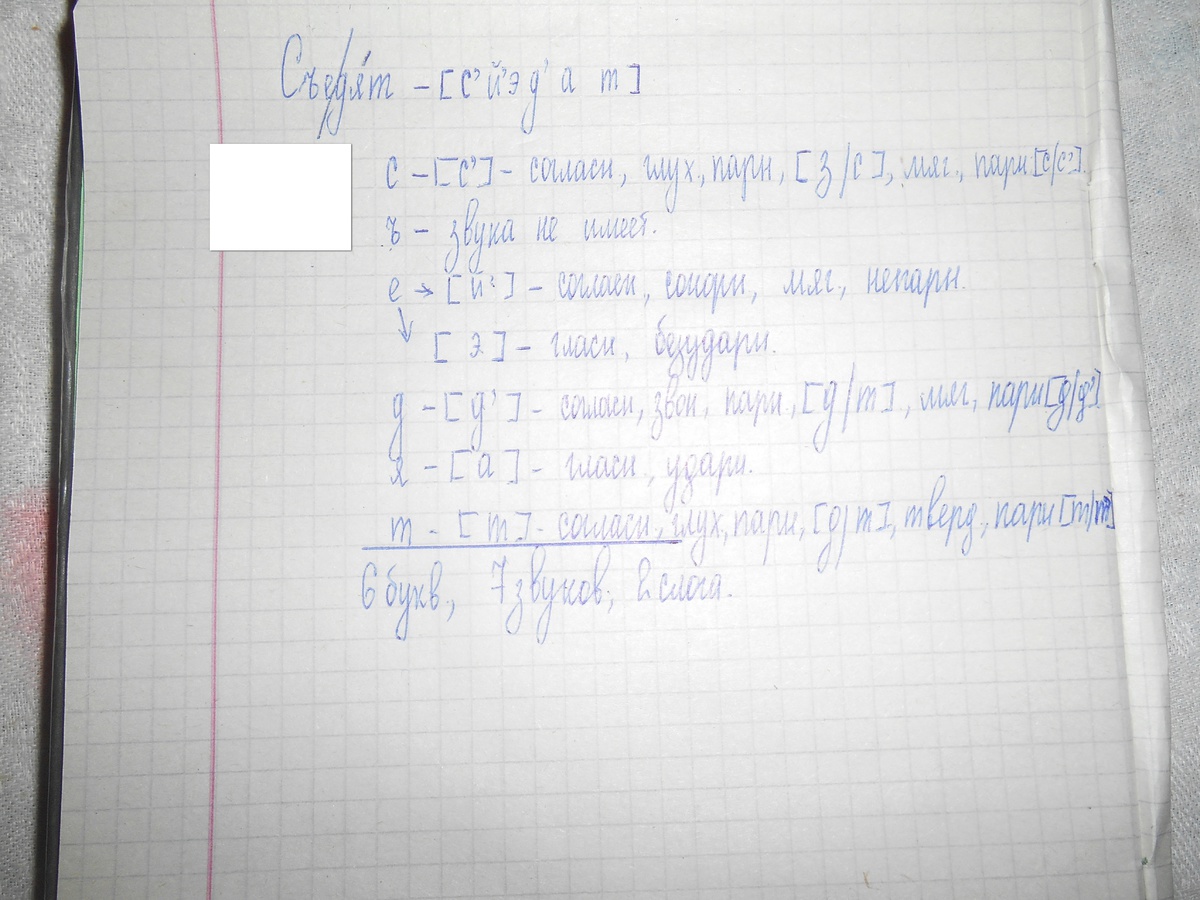 Съедя́т - [с' й'э д' а т]
с - [с'] - согласн, глух., парн, [з/с], мяг., парн [с/с'].
ъ - звука не имеет.
е → [й'] - согласн, сонорн, мяг., непарн.
↓ [э] - гласн, безударн.
д - [д'] - согласн, звон, парн., [д/т], мяг, парн [д/д']
я - [а] - гласн., ударн.
т - [т] - согласн., глух, парн, [д/т], тверд., парн [т/т']
6 букв., 7 звуков, 2 слога.